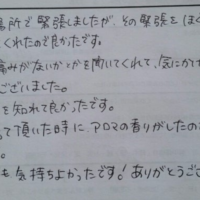 場所で緊張しましたが、その緊張をほぐ
くれたので良かったです。
痛みがないかとかを聞いてくれて、気にかけ
ございました。
を知れて良かったです。
って頂いた時に、アロマの香りがしたので
。
も気持ちよかったです！ありがとうござ